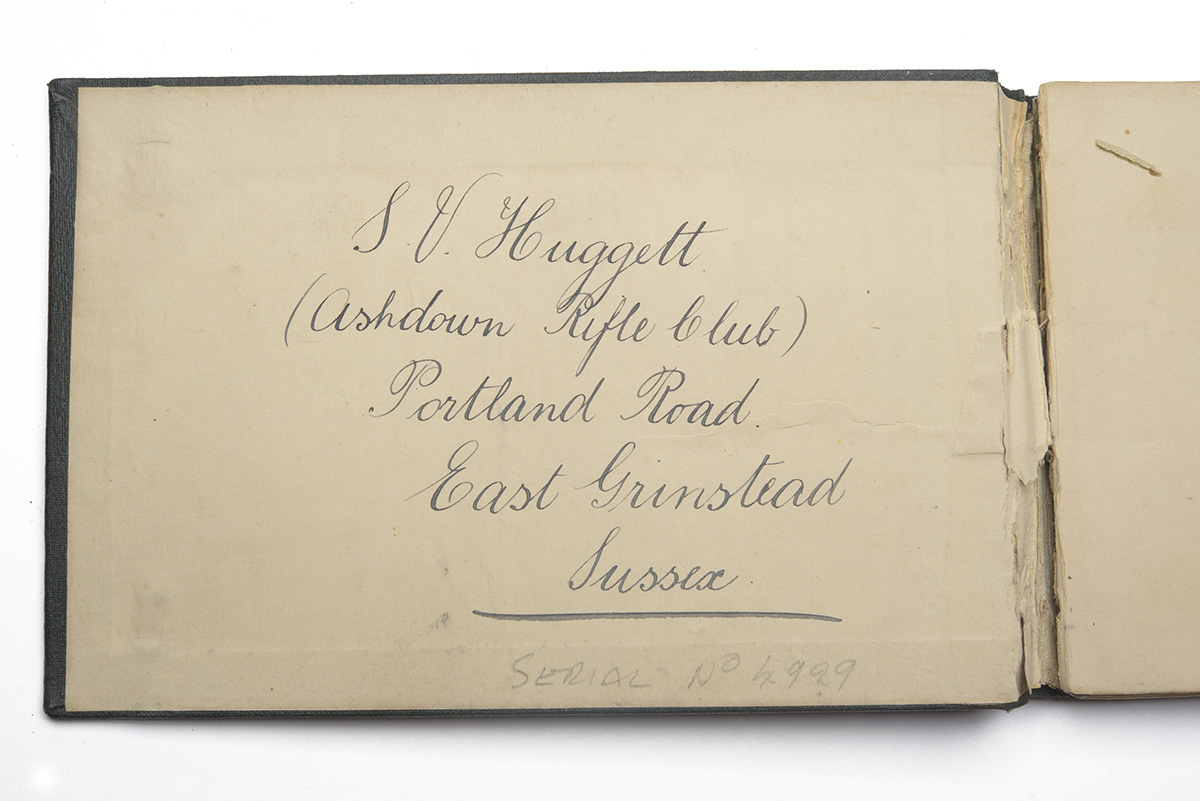 S. V. Huggett.
(Ashdown Rifle Club)
Portland Road.
East Grinstead
Sussex.
SERIAL No 4999